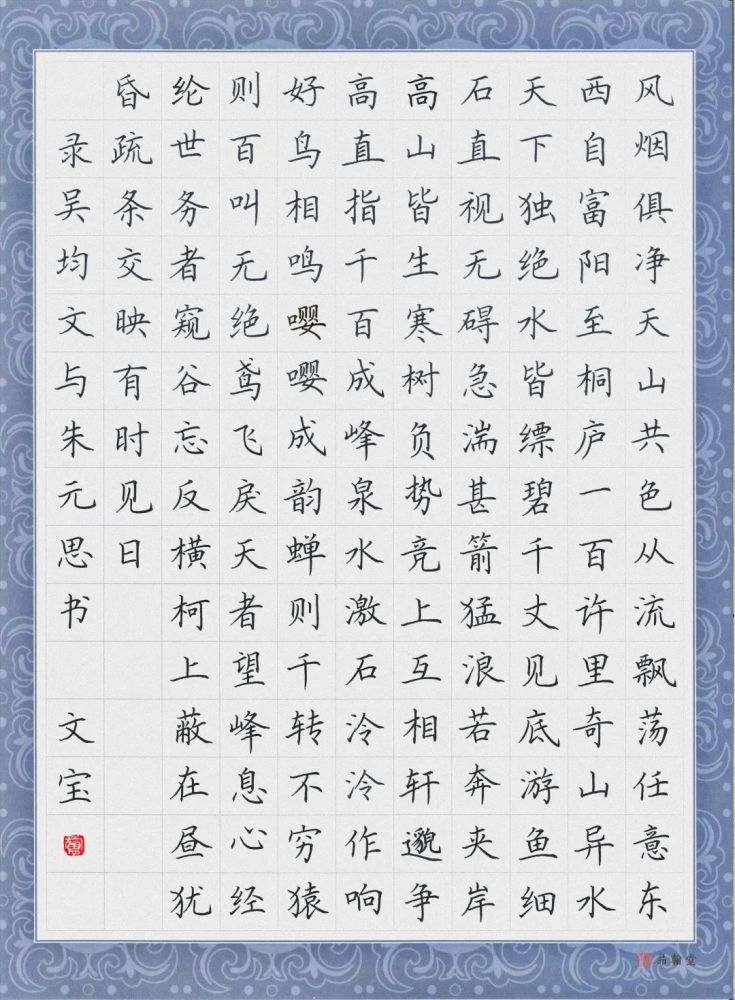 风烟俱净天山共色从流飘荡任意东
西自富阳至桐庐一百许里奇山异水
天下独绝水皆缥碧千丈见底游鱼细
石直视无碍急湍甚箭猛浪若奔夹岸
高山皆生寒树负势竞上互相轩邈争
高直指千百成峰泉水激石泠泠作响
好鸟相鸣嘤嘤成韵蝉则千转不穷猿
则百叫无绝鸢飞戾天者望峰息心经
纶世务者窥谷忘反横柯上蔽在昼犹
昏疏条交映有时见日
录吴均文与朱元思书 文宝
品翰堂